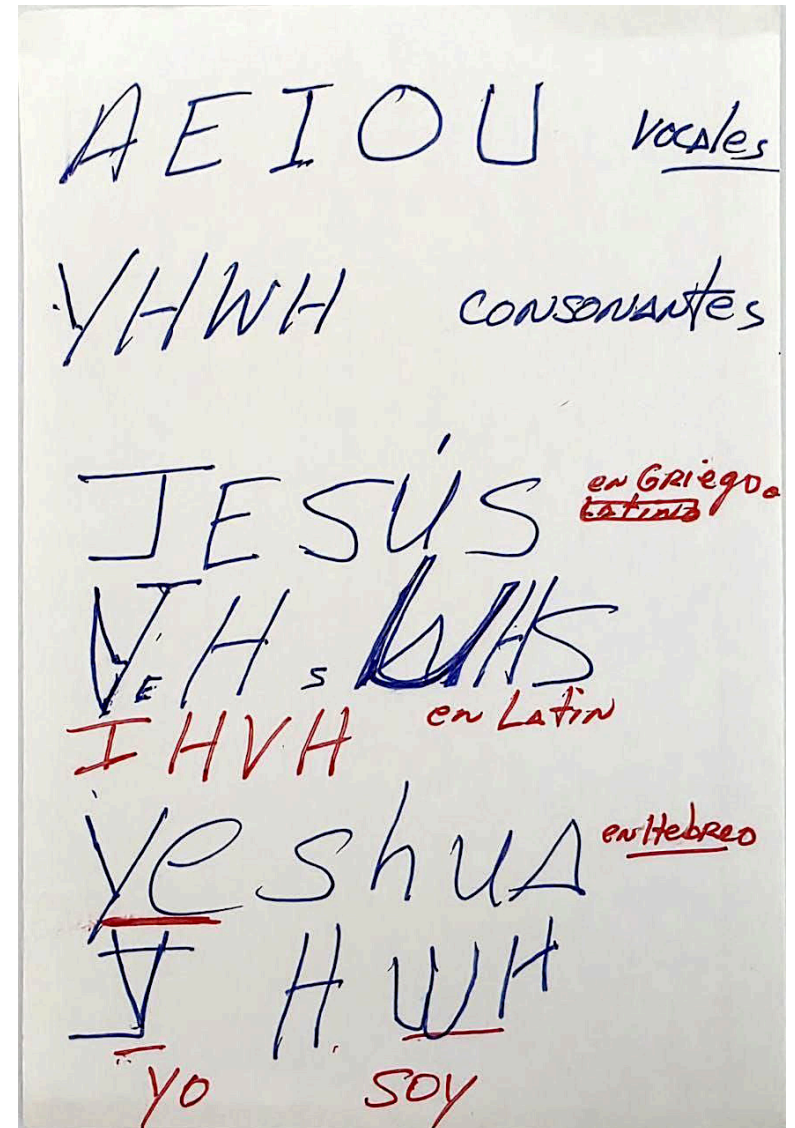 AEIOU vocales
YHWH consonantes
JESÚS en Griego.
YE H s WHS
en Latin
IHVH
Yeshua en Hebreo
H. WH
yo soy